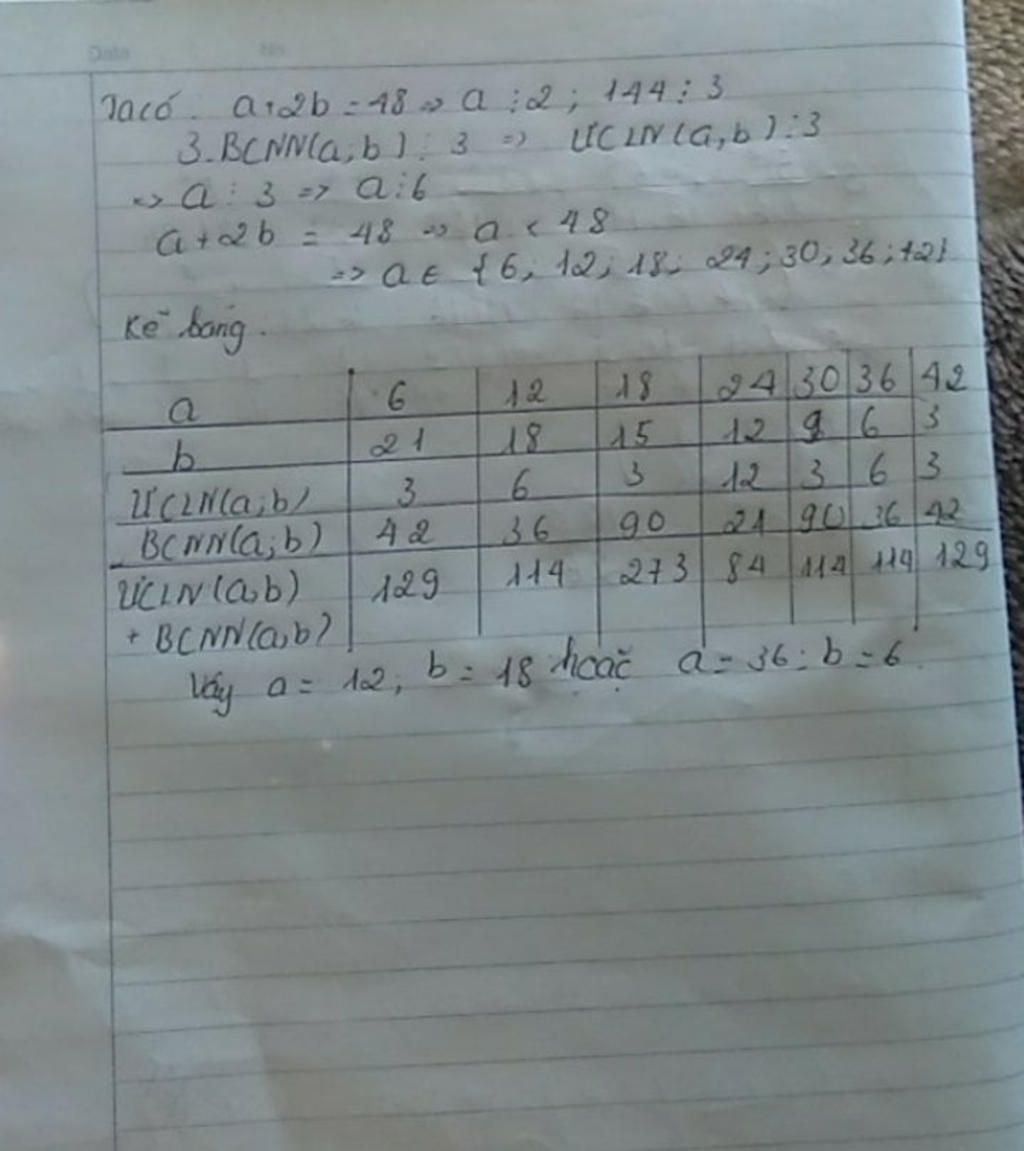 Date No
Ta có. a+2b = 48 => a ⋮ 2 ; 144 ⋮ 3
3.BCNN(a;b) ⋮ 3 => ƯCLN(a,b) ⋮ 3
=> a ⋮ 3 => a ⋮ 6
a+2b = 48 => a < 48
=> a ∈ {6; 12; 18; 24; 30; 36; 42}
Kẻ bảng.
a 6 12 18 24 30 36 42
b 21 18 15 12 9 6 3
ƯCLN(a;b) 3 6 3 12 3 6 3
BCNN(a;b) 42 36 90 24 90 36 42
ƯCLN(a,b) 129 114 273 84 114 114 129
+ BCNN(a,b)
Vậy a = 12; b = 18 hoặc a = 36; b = 6.